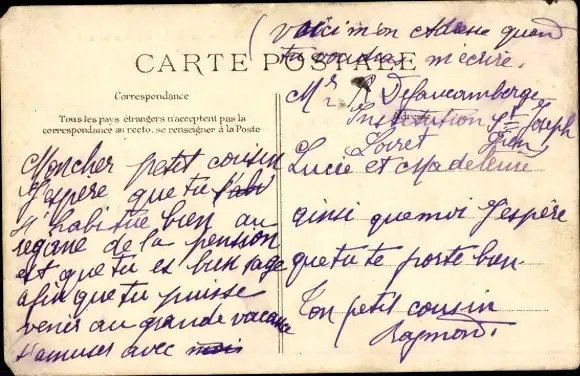 (Voici mon adresse quand
tu voudras m'écrire.
CARTE POSTALE
Mr R Defaucamberge
Institution St Joseph
Gien
Loiret
Correspondance
Tous les pays étrangers n'acceptent pas la
correspondance au recto, se renseigner à la Poste
Moncher petit cousin
J'espère que tu
t'habitue bien au
regime de la pension
et que tu es bien sage
afin que tu puisse
venir au grande vacance
t'amuser avec mois
Lucie et Madeleine
ainsi que moi J'espère
que tu te porte bien
Ton petit cousin
Raymond.